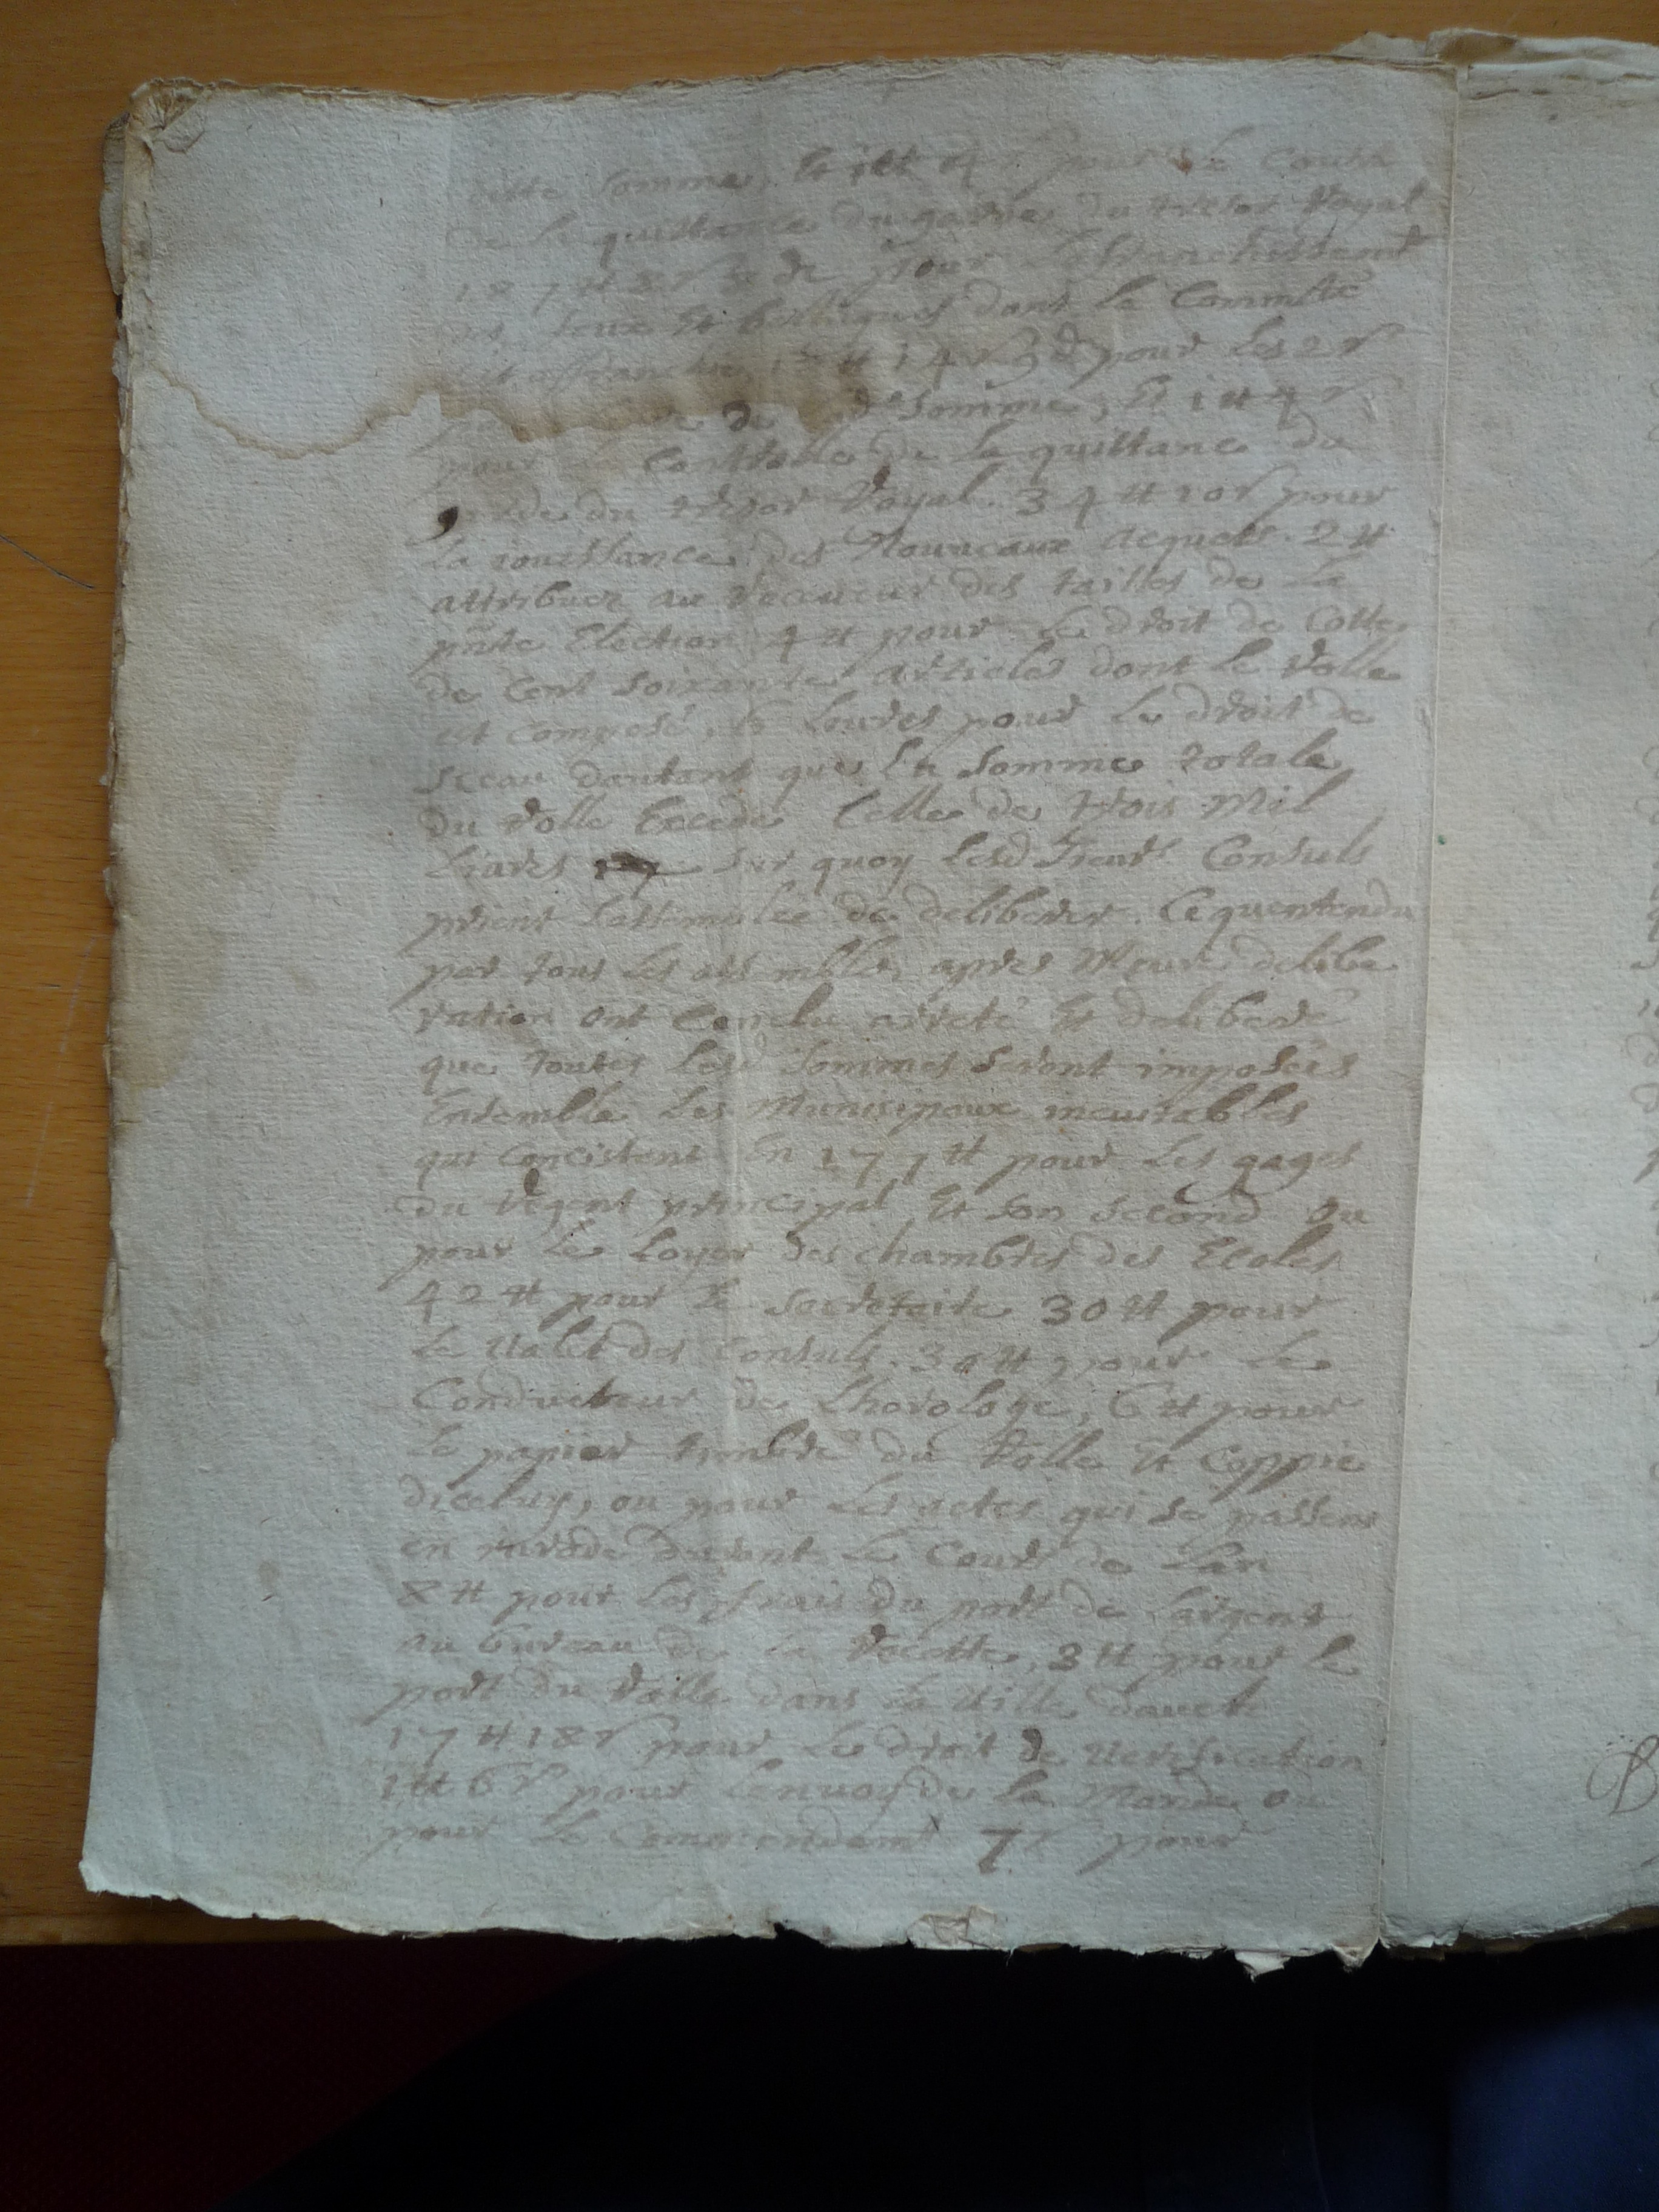 cette somme, Et 1 ₶ 4 s pour le Contr
de la quittance du garde du tresor Royal
187 ₶ 8 s de pour Laffranchissement
des feux Et bellugues dont la Commte
est affranchie, ₶ 14 s 3 d pour les 2 s
de de somme, Et 1 ₶ 4 s
pour le Controlle de la quittance du
garde du tresor Royal. 34 ₶ 10 s pour
La jouissance des Nouveaux acquets. 2 ₶
attribuez au Receveur des tailles de La
pnte Election 4 ₶ pour le droit de Cotte
de Cent soixante articles dont le Rolle
est composé, Livres pour Le droit de
sceau dautant que La somme totale
du Rolle Excede Celle de trois Mil
Livres sur quoy Lesd sieurs Consuls
prient Lassemblée de deliberer. Ce quentendu
par tous les assemblés, apres Meure delibe
ration ont Conclu arreté Et deliberé
que toutes Lesd sommes seront imposées
Ensemble Les Municipaux inevitables
qui Concistent En 171 ₶ pour Les gages
du Regent principal Et son second ou
pour le Loyer des chambres des Ecoles
42 ₶ pour le secretaire 30 ₶ pour
Le valet des Consuls. 30 ₶ pour Le
Conducteur de Lhorologe, 6 ₶ pour
Le papier timbré du Rolle Et Coppie
diceluy, ou pour les actes qui se passent
en jurade durant Le Cours de Lan
8 ₶ pour Les frais du port de Largent
au bureau de la Recette, 3 ₶ pour le
port du Rolle dans La Ville dauch
17 ₶ 18 s pour Le droit de verification
1 ₶ 6 s pour Lenvoy de La Mande ou
pour Le Commendemt 7 s pour